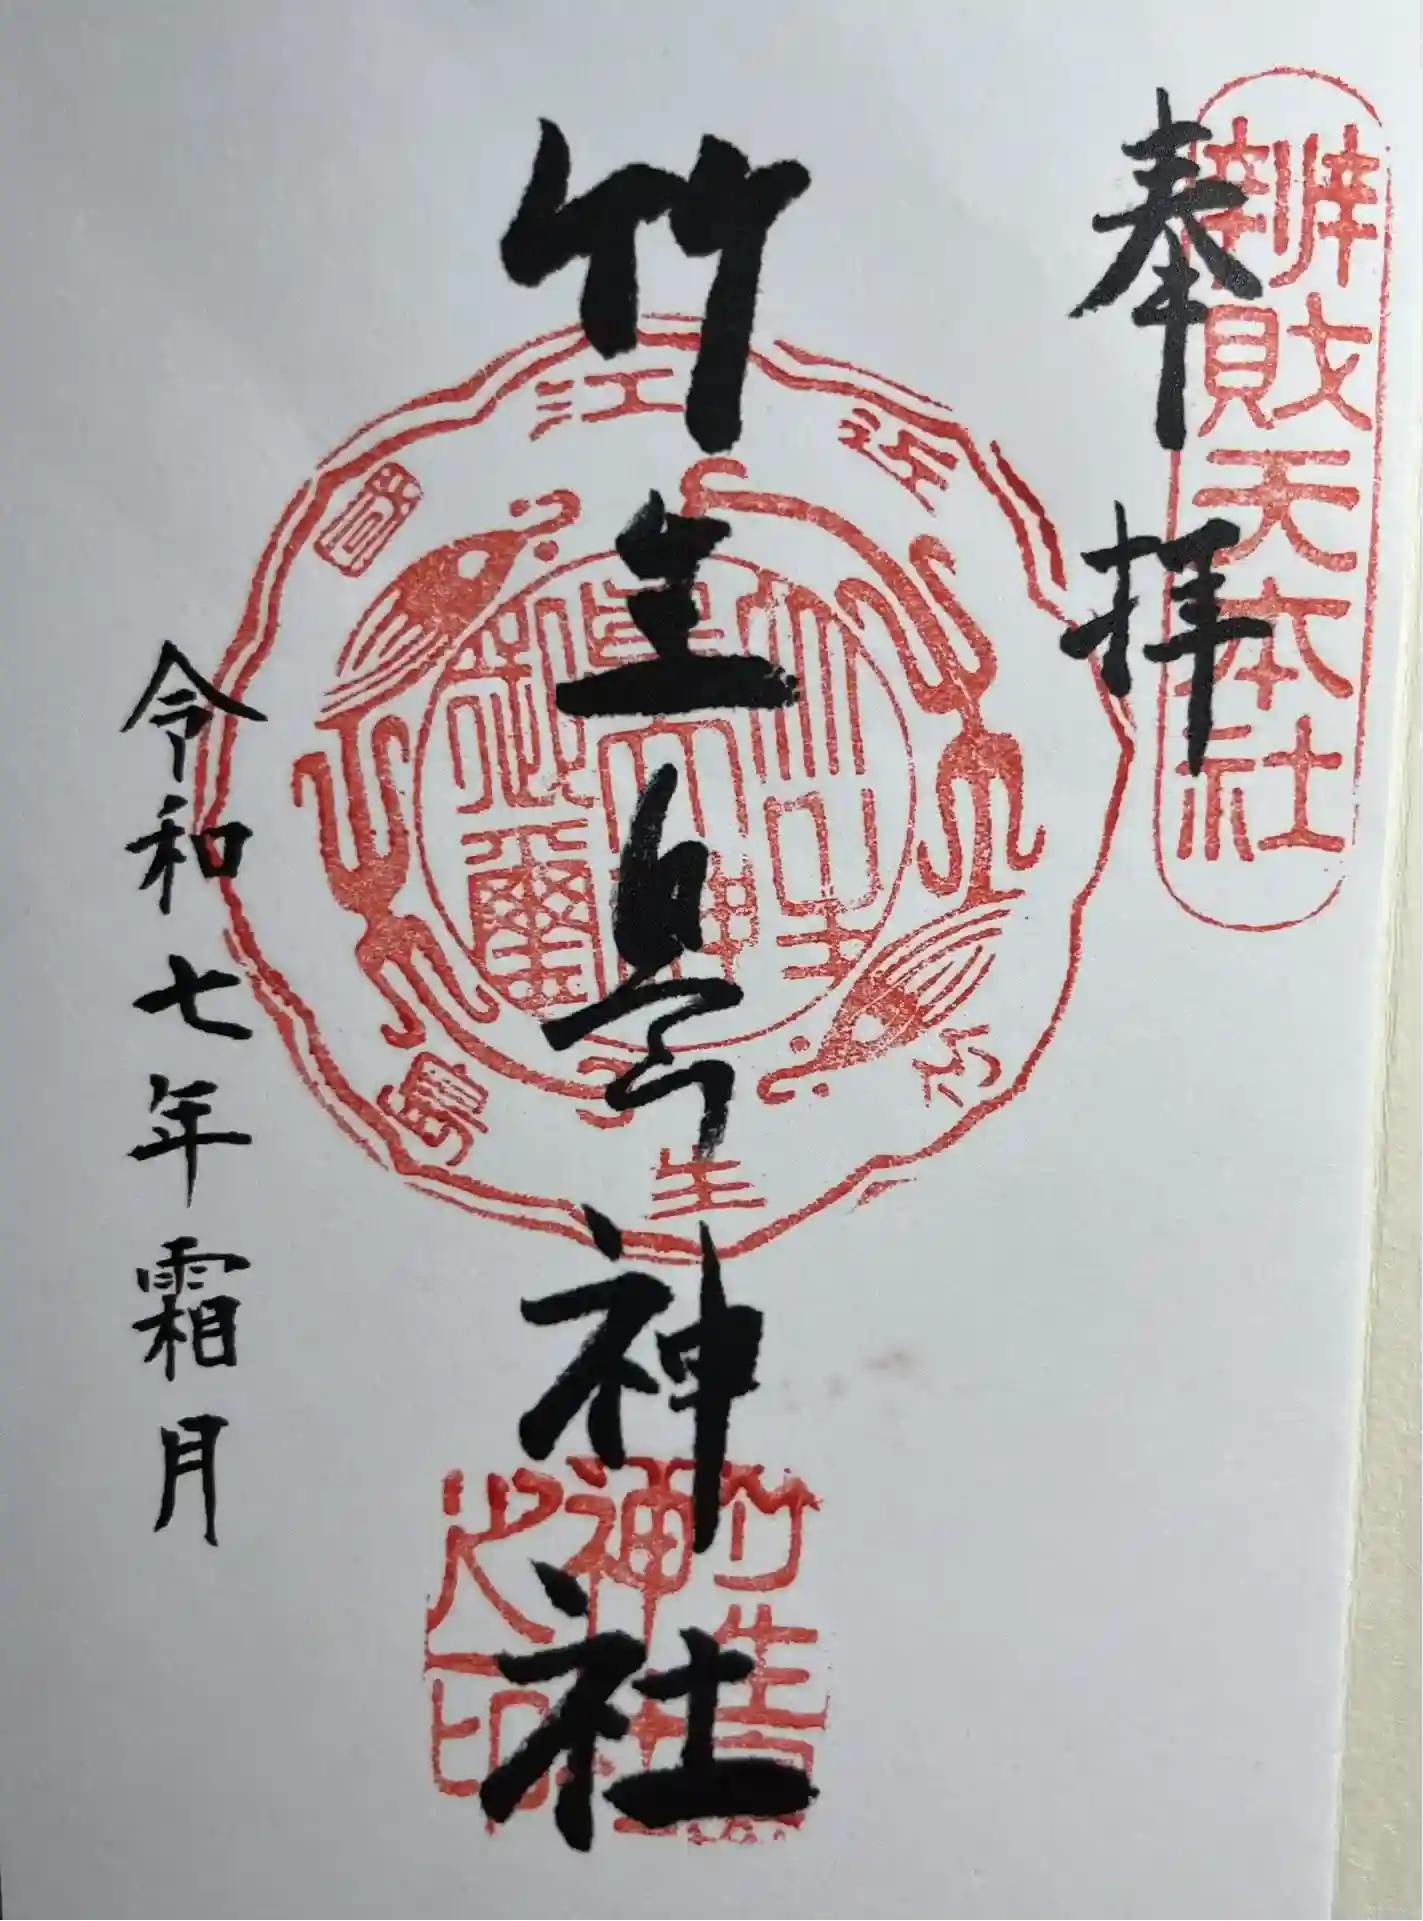 奉拝
辨財天本社
竹生島神社
近江國竹生島
竹生島神社之印
令和七年霜月